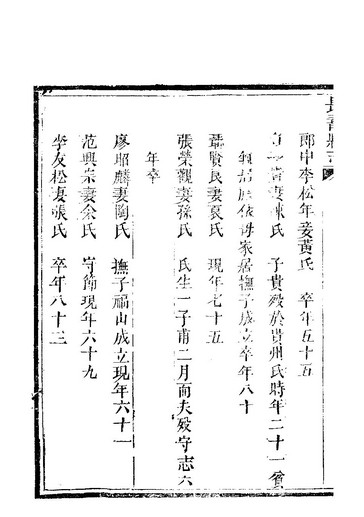 郎中李松年妾黃氏　卒年五十五
妻陳氏　子貴歿於貴州氏時年二十一
依母家居撫子成立卒年八十
賢良妻夏氏　現年七十五
張榮觀妻孫氏　氏生一子甫二月而夫歿守志六
年卒
廖昭麟妻陶氏　撫子福山成立現年六十一
范興宗妻余氏　守節現年六十九
李友松妻張氏　卒年八十三